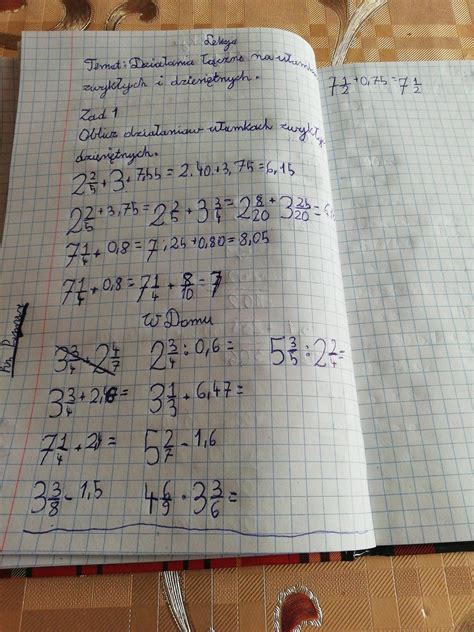 Lekcja
Temat: Działania łączne na ułamkach
zwykłych i dziesiętnych.
Zad 1
Oblicz działania w ułamkach zwykły
dziesiętnych.
2 2/5 + 3 + 7,55 = 2.40 + 3,75 = 6,15
2 2/5 + 3,75 = 2 2/5 + 3 3/4 = 2 8/20 + 3 25/20 =
7 1/4 + 0,8 = 7,25 + 0,80 = 8,05
7 1/4 + 0,8 = 7 1/4 + 8/10 = 7
W Domu
2 3/4 : 0,6 = 5 3/5 : 2 2/4 =
3 3/4 + 2,46 = 3 1/3 + 6,47 =
7 1/4 + 2,4 = 5 2/7 - 1,6
3 3/8 - 1,5 4 6/9 · 3 3/6 =
7 1/2 + 0,75 = 7 1/2